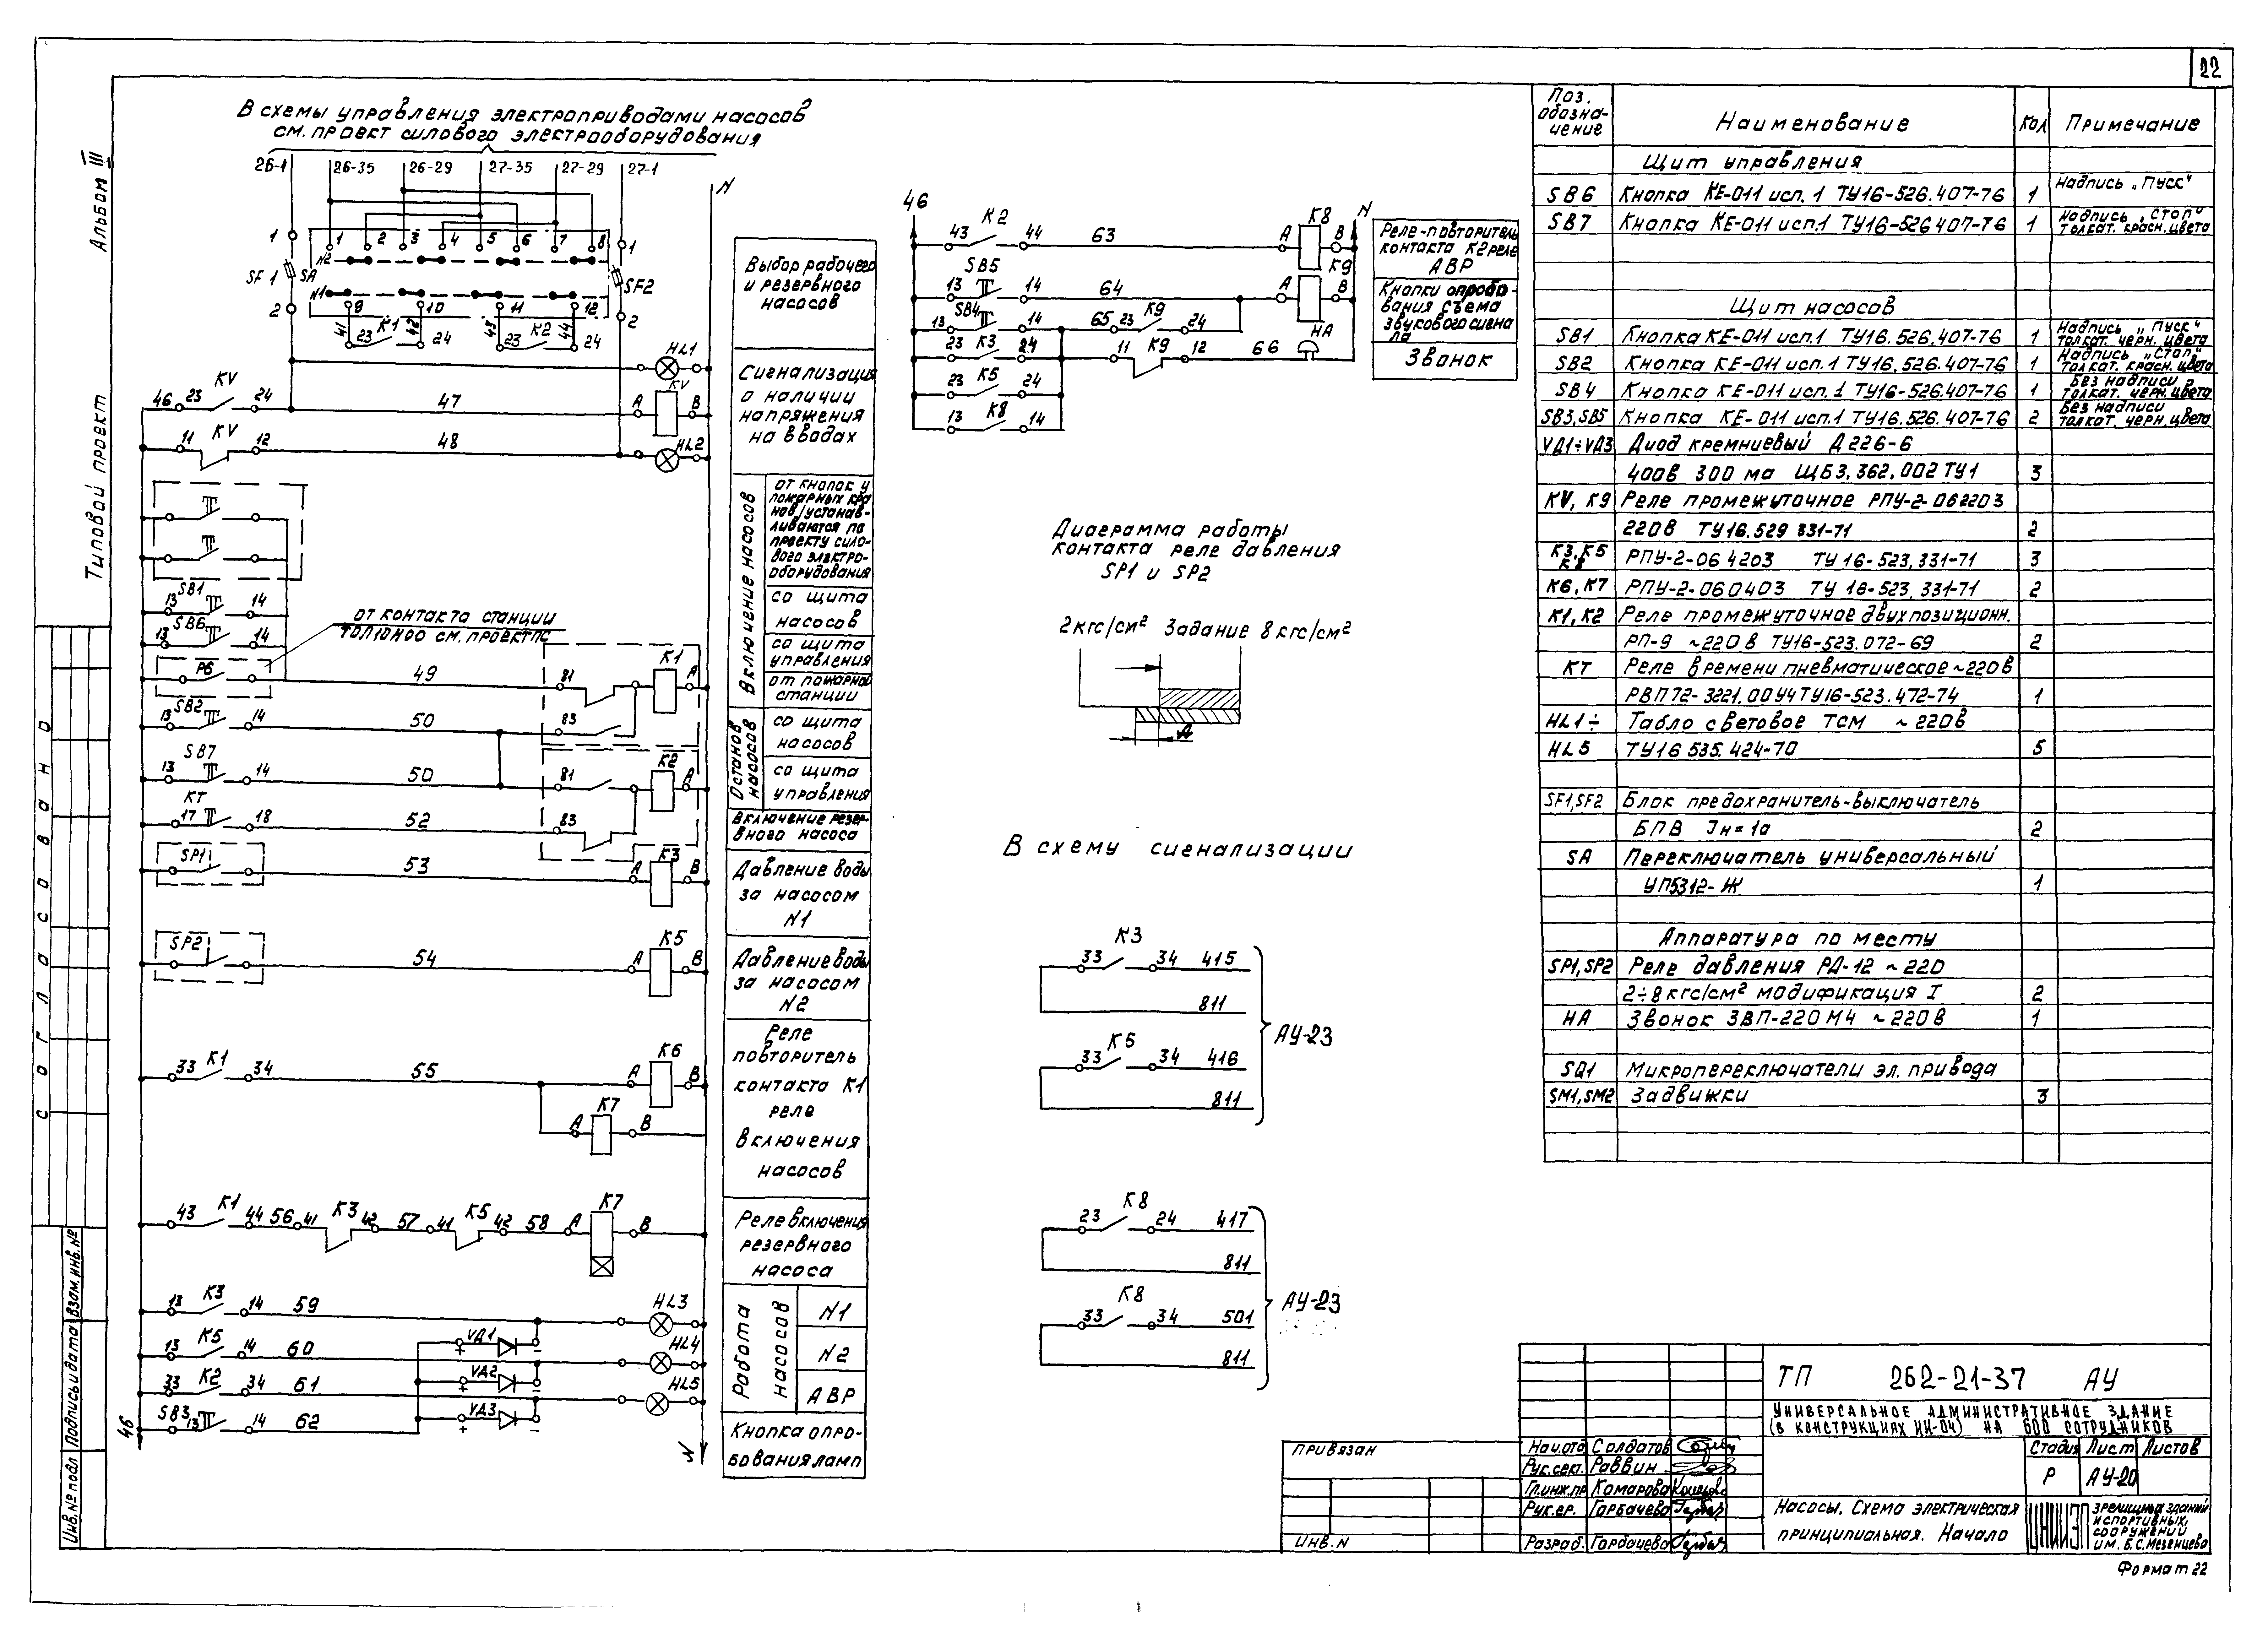 22
Альбом III
Типовой проект
СОГЛАСОВАНО
Взам. инв. №
Подпись и дата
Инв. № подл
В схемы управления электроприводами насосов
см. проект силового электрооборудования
26-1 26-35 26-29 27-35 27-29 27-1 N
1 1 2 3 4 5 6 7 8 1
SF1 SA N2 SF2
N1
2 9 10 11 12 2
41 23 K1 42 24 43 23 K2 44 24
HL1
46 23 KV 24 47 A KV B
11 KV 12 48 HL2
SB1
13 14
SB6
13 14
от контакта станции
ТОЛ10/100 см. проект ПС
P6 49 81 K1 A
SB2
13 14 50 83
SB7
13 14 50 81 K2 A
KT
17 18 52 83
SP1 53 A K3 B
SP2 54 A K5 B
33 K1 34 55 A K6 B
A K7 B
43 K1 44 56 41 K3 42 57 41 K5 42 58 A K7 B
13 K3 14 59 HL3
VД1
+ −
13 K5 14 60 HL4
VД2
+ −
33 K2 34 61 HL5
VД3
+ −
SB3 13 14 62
46 N
Выбор рабочего
и резервного
насосов
Сигнализация
о наличии
напряжения
на вводах
Включение насосов
от кнопок у
пожарных кра
нов/устанав-
ливаются по
проекту сило-
вого электро-
оборудования
со щита
насосов
со щита
управления
от пожарной
станции
Останов
насосов
со щита
насосов
со щита
управления
Включение резер-
вного насоса
Давление воды
за насосом
N1
Давление воды
за насосом
N2
Реле
повторитель
контакта K1
реле
включения
насосов
Реле включения
резервного
насоса
Работа
насосов
N1
N2
АВР
Кнопка опро-
бования ламп
46 N
43 K2 44 63 A K8 B
SB5
13 14 64 A K9 B
SB4
13 14 65 23 K9 24 HA
23 K3 24 11 K9 12 66
23 K5 24
13 K8 14
Реле-повторитель
контакта K2 реле
АВР
Кнопки опробо-
вания съема
звукового сигна
ла
Звонок
Диаграмма работы
контакта реле давления
SP1 и SP2
2кгс/см² Задание 8 кгс/см²
В схему сигнализации
K3
33 34 415
811
АУ-23
K5
33 34 416
811
K8
23 24 417
811
АУ-23
K8
33 34 501
811
Поз. обозна-чение Наименование Кол Примечание
Щит управления
SB6 Кнопка КЕ-011 исп. 1 ТУ16-526.407-76 1 Надпись „Пуск“
SB7 Кнопка КЕ-011 исп.1 ТУ16-526407-76 1 Надпись „Стоп“ толкат. красн. цвета
Щит насосов
SB1 Кнопка КЕ-011 исп.1 ТУ16.526.407-76 1 Надпись „Пуск“ толкат. черн. цвета
SB2 Кнопка КЕ-011 исп.1 ТУ16.526.407-76 1 Надпись „Стоп“ толкат. красн. цвета
SB4 Кнопка КЕ-011 исп. 1 ТУ16-526.407-76 1 Без надписи толкат. черн. цвета
SB3, SB5 Кнопка КЕ-011 исп.1 ТУ16.526.407-76 2 Без надписи толкат. черн. цвета
VД1÷VД3 Диод кремниевый Д226-6
400в 300 ма ЩБ3.362.002 ТУ1 3
KV, K9 Реле промежуточное РПУ-2-062203
220В ТУ16.529 331-71 2
K3, K5 K8 РПУ-2-06 4203 ТУ 16-523.331-71 3
K6, K7 РПУ-2-060403 ТУ 16-523.331-71 2
K1, K2 Реле промежуточное двухпозиционн.
РП-9 ~220 В ТУ16-523.072-69 2
KT Реле времени пневматическое ~220в
РВП72-3221.00У4 ТУ16-523.472-74 1
HL1÷ Табло световое ТСМ ~220в
HL5 ТУ16 535.424-70 5
SF1, SF2 Блок предохранитель-выключатель
БПВ Jн=1а 2
SA Переключатель универсальный
УП5312-Ж 1
Аппаратура по месту
SP1, SP2 Реле давления РД-12 ~220
2÷8 кгс/см² модификация I 2
HA Звонок ЗВП-220 М4 ~220в 1
SQ1 Микропереключатели эл. привода
SM1, SM2 Задвижки 3
ТП 262-21-37 АУ
Универсальное административное здание
(в конструкциях ИИ-04) на 600 сотрудников
Стадия Лист Листов
Р АУ-20
Насосы. Схема электрическая
принципиальная. Начало
ЦНИИЭП
зрелищных зданий
и спортивных
сооружений
им. Б.С. Мезенцева
Нач. отд Солдатов
Рук. сект. Раввин
Гл. инж. пр Комарова
Рук. гр. Горбачева
Разраб. Горбачева
Привязан
Инв. N
Формат 22